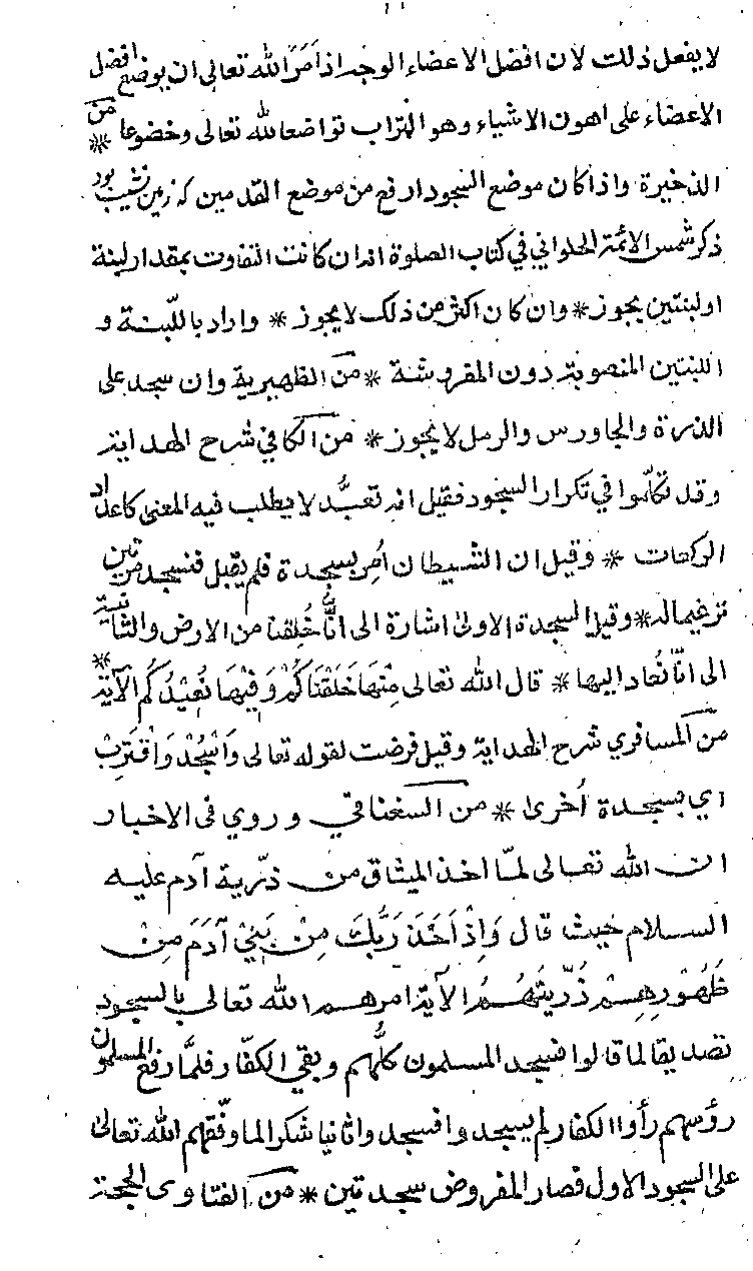 لا يفعل ذلك لان افضل الاعضاء الوجه اذ امر الله تعالى ان يوضع افضل
الاعضاء على اهون الاشياء وهو التراب تواضعا لله تعالى وخضوعا * من
الذخيرة واذا كان موضع السجود ارفع من موضع القدمين كه زمين نشيب بود
ذكر شمس الائمة الحلواني في كتاب الصلوة انه ان كانت التفاوت بمقدار لبنة
او لبنتين يجوز * وان كان اكثر من ذلك لا يجوز * واراد باللّبنة و
اللبنتين المنصوبة دون المفروشة * من الظهيرية وان سجد على
الذرة والجاورس والرمل لا يجوز * من الكافي شرح الهداية
وقد تكلّموا في تكرار السجود فقيل انه تعبُّد لا يطلب فيه المعنى كاعداد
الركعات * وقيل ان الشيطان اُمِر بسجدة فلم يقبل فنسجد مرتين
ترغيما له * وقيل السجدة الاولى اشارة الى انّا خُلِقنا من الارض والثانية
الى انّا نُعاد اليها * قال الله تعالى مِنْهَا خَلَقْنَاكُمْ وَفِيْهَا نُعِيْدُكُم الآية *
من المسافري شرح الهداية وقيل فرضت لقوله تعالى وَاسْجُدْ وَاقْتَرِبْ
اي بسجدة اُخرى * من السغناقي وروي فى الاخبار
ان الله تعالى لمّا اخذ الميثاق من ذرّية آدم عليه
السلام حيث قال وَاِذْ اَخَذَ رَبُّكَ مِنْ بَنِيْ آدَمَ مِنْ
ظُهُوْرِهِمْ ذُرِّيَّتَهُمْ الآية امرهم الله تعالى بالسجود
تصديقا لما قالوا فسجد المسلمون كلُّهم وبقي الكفّار فلمّا رفع المسلمون
رؤسهم رأوا الكفار لم يسجدوا فسجدوا ثانيا شكرا لما وفّقهم الله تعالى
على السجود الاول فصار المفروض سجدتين * من الفتاوى الحجة